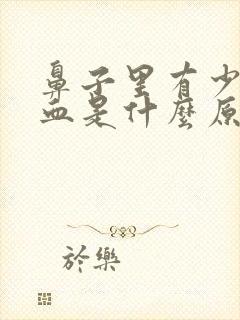 鼻子里有少
血是什麼原
於樂